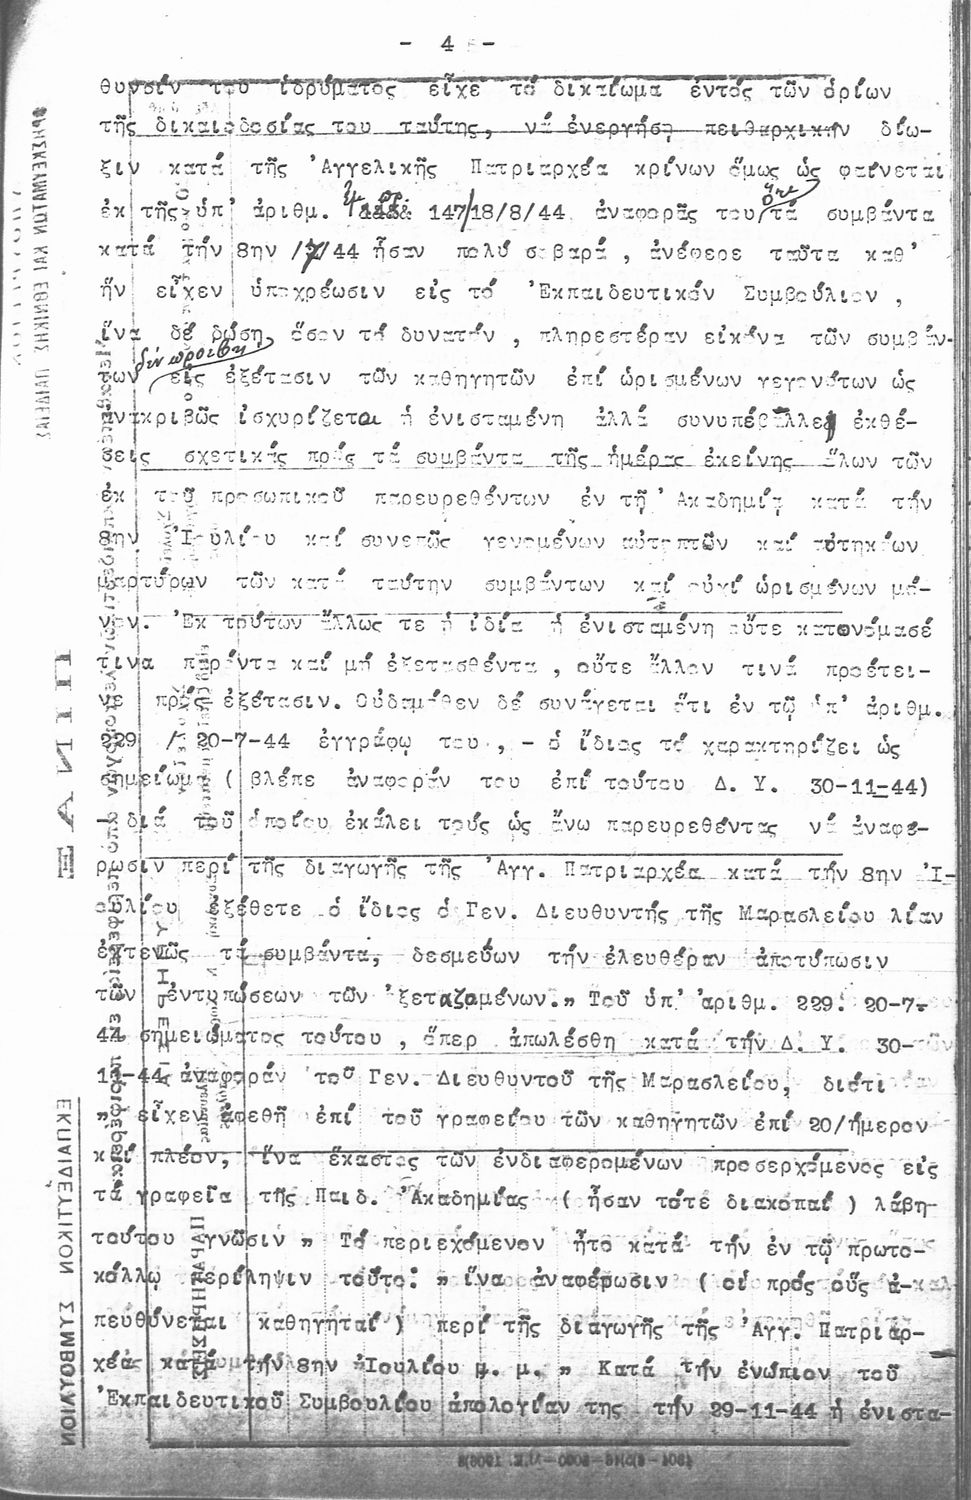 - 4 -
θυνσίν του ἱδρύματος εἶχε τό δικαίωμα ἐντός τῶν ὁρίων
τῆς δικαιοδοσίας του ταύτης, νά ἐνεργήση πειθαρχικήν δίω-
ξιν κατά τῆς Ἀγγελικῆς Πατριαρχέα κρίνων ὅμως ὡς φαίνεται
ἐκ τῆς ὑπ' ἀριθμ. 147/18/8/44 ἀναφορᾶς του ὅτι τά συμβάντα
κατά τήν 8ην /7/44 ἦσαν πολύ σοβαρά , ἀνέφερε ταῦτα καθ'
ἥν εἶχεν ὑποχρέωσιν εἰς τό Ἐκπαιδευτικόν Συμβούλιον ,
ἵνα δέ δώση ὅσον τό δυνατόν , πληρεστέραν εἰκόνα τῶν συμβάν-
των δέν προέβη εἰς ἐξέτασιν τῶν καθηγητῶν ἐπί ὡρισμένων γεγονότων ὡς
ἀνακριβῶς ἰσχυρίζεται ἡ ἐνισταμένη ἀλλά συνυπέβαλλε ἐκθέ-
σεις σχετικάς πρός τά συμβάντα τῆς ἡμέρας ἐκείνης ὅλων τῶν
ἐκ τοῦ προσωπικοῦ παρευρεθέντων ἐν τῇ Ἀκαδημίᾳ κατά τήν
8ην Ἰουλίου καί συνεπῶς γενομένων αὐτοπτῶν καί αὐτηκόων
μαρτύρων τῶν κατά ταύτην συμβάντων καί οὐχί ὡρισμένων μό-
νον. Ἐκ τούτων ἄλλως τε ἡ ἰδία ἡ ἐνισταμένη οὔτε κατονόμασέ
τινα παρόντα καί μή ἐξετασθέντα , οὔτε ἄλλον τινά προέτει-
νε πρός ἐξέτασιν. Οὐδαμόθεν δέ συνάγεται ὅτι ἐν τῷ ὑπ' ἀριθμ.
229 / 20-7-44 ἐγγράφῳ του , - ὁ ἴδιος τό χαρακτηρίζει ὡς
σημείωμα ( βλέπε ἀναφοράν του ἐπί τούτου Δ. Υ. 30-11-44)
- διά τοῦ ὁποίου ἐκάλει τούς ὡς ἄνω παρευρεθέντας νά ἀναφέ-
ρωσιν περί τῆς διαγωγῆς τῆς Ἀγγ. Πατριαρχέα κατά τήν 8ην Ἰ-
ουλίου ἐξέθετε ὁ ἴδιος ὁ Γεν. Διευθυντής τῆς Μαρασλείου λίαν
ἐκτενῶς τά συμβάντα, δεσμεύων τήν ἐλευθέραν ἀποτύπωσιν
τῶν ἐντυπώσεων τῶν 'ξεταζομένων." Τοῦ ὑπ' ἀριθμ. 229. 20-7-
44 σημειώματος τούτου , ὅπερ ἀπωλέσθη κατά τήν Δ. Υ. 30-
11-44 ἀναφοράν τοῦ Γεν. Διευθυντοῦ τῆς Μαρασλείου, διότι
" εἶχεν ἀφεθῆ ἐπί τοῦ γραφείου τῶν καθηγητῶν ἐπί 20/ήμερον
καί πλέον, ἵνα ἕκαστος τῶν ἐνδιαφερομένων προσερχόμενος εἰς
τά γραφεῖα τῆς Παιδ. Ἀκαδημίας ( ἦσαν τότε διακοπαί ) λάβη
τούτου γνῶσιν " Τό περιεχόμενον ἦτο κατά τήν ἐν τῷ πρωτο-
κόλλῳ περίληψιν τοῦτο: " ἵνα ἀναφέρωσιν ( οἱ πρός οὕς ἀ-
πευθύνεται καθηγηταί ) περί τῆς διαγωγῆς τῆς Ἀγγ. Πατριαρ-
χέας κατά τήν 8ην Ἰουλίου μ. μ. " Κατά τήν ἐνώπιον τοῦ
Ἐκπαιδευτικοῦ Συμβουλίου ἀπολογίαν της τήν 29-11-44 ἡ ἐνιστα-
ΘΡΗΣΚΕΥΜΑΤΩΝ ΚΑΙ ΕΘΝΙΚΗΣ ΠΑΙΔΕΙΑΣ
ΕΚΠΑΙΔΕΥΤΙΚΟΝ ΣΥΜΒΟΥΛΙΟΝ